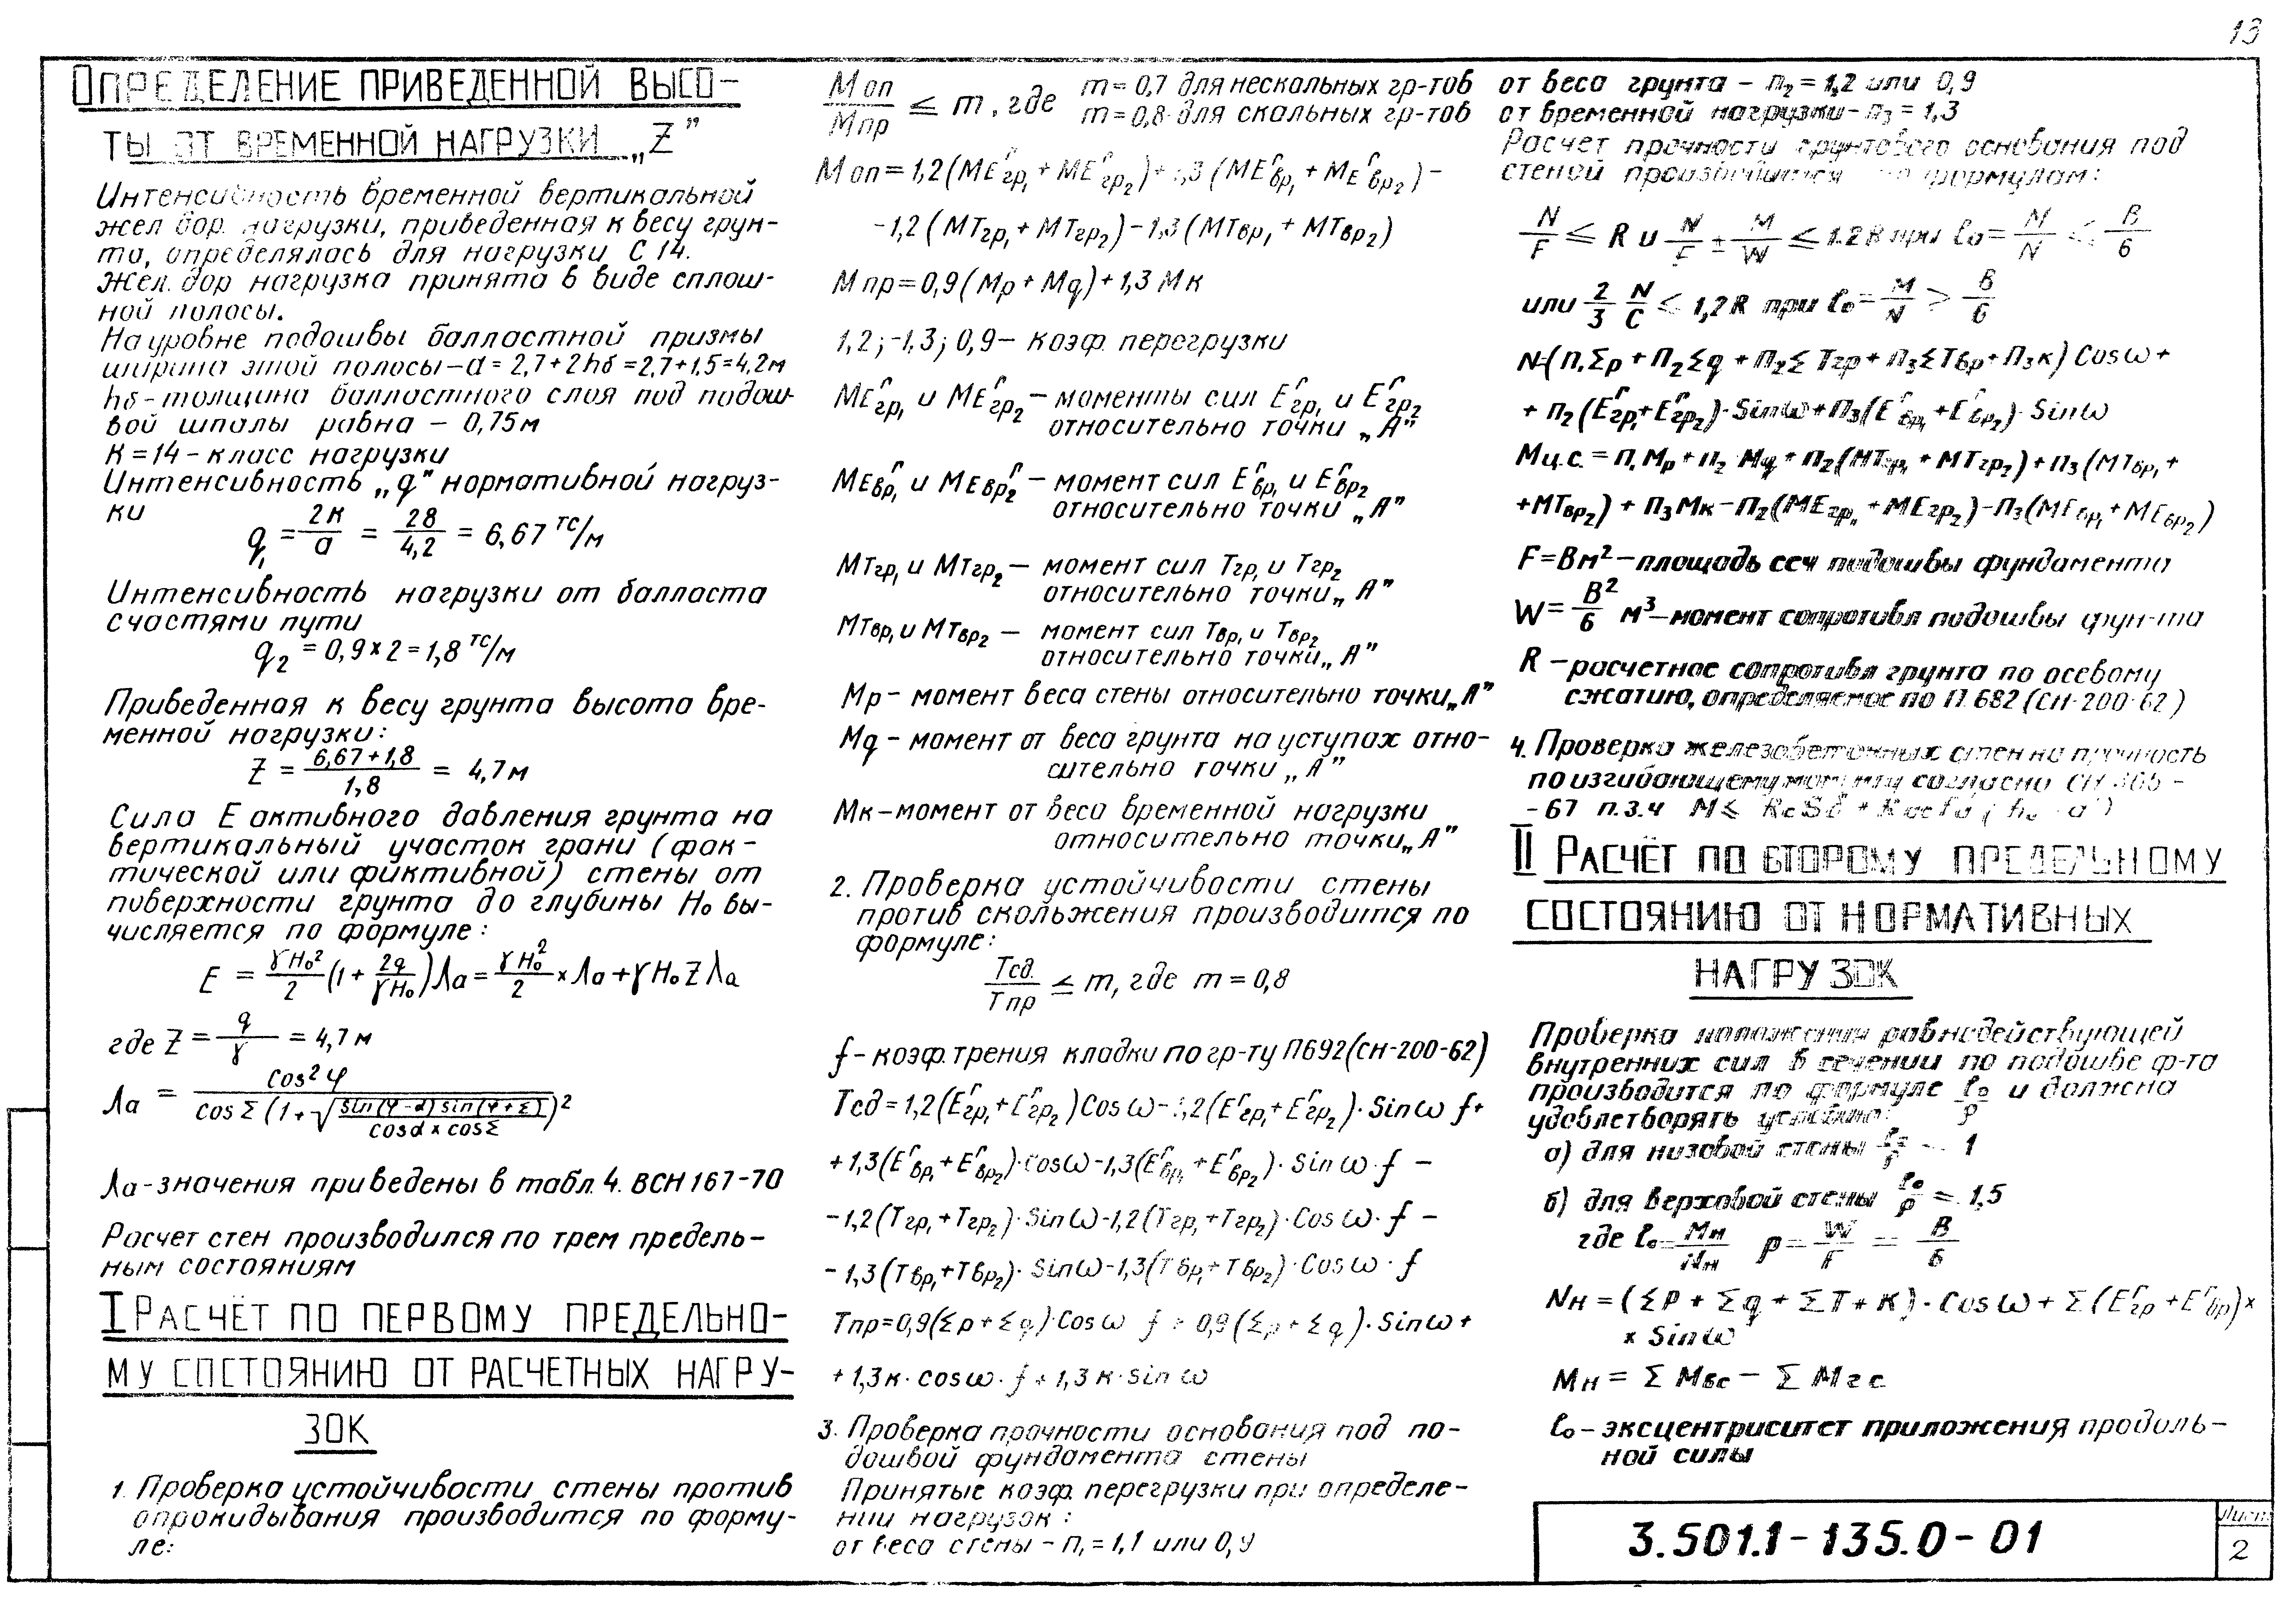 13
ОПРЕДЕЛЕНИЕ ПРИВЕДЕННОЙ ВЫСО-
ТЫ ОТ ВРЕМЕННОЙ НАГРУЗКИ „Z”
Интенсивность временной вертикальной
жел дор. нагрузки, приведенная к весу грун-
та, определялась для нагрузки С 14.
Жел. дор нагрузка принята в виде сплош-
ной полосы.
На уровне подошвы балластной призмы
ширина этой полосы – a = 2,7 + 2hб = 2,7 + 1,5 = 4,2 м
hб – толщина балластного слоя под подош-
вой шпалы равна – 0,75 м
К = 14 – класс нагрузки
Интенсивность „q” нормативной нагруз-
ки
q₁ = 2к/a = 28/4,2 = 6,67 тс/м
Интенсивность нагрузки от балласта
с частями пути
q₂ = 0,9 × 2 = 1,8 тс/м
Приведенная к весу грунта высота вре-
менной нагрузки:
Z = (6,67 + 1,8)/1,8 = 4,7 м
Сила Е активного давления грунта на
вертикальный участок грани (фак-
тической или фиктивной) стены от
поверхности грунта до глубины Н₀ вы-
числяется по формуле:
E = γH₀²/2 (1 + 2q/γH₀) λa = γH₀²/2 × λa + γH₀Zλa
где Z = q/γ = 4,7 м
λa = cos²φ / cos Σ (1 + √(sin(φ-α) sin(φ+Σ) / cosα × cosΣ))²
λa – значения приведены в табл. 4. ВСН 167-70
Расчет стен производился по трем предель-
ным состояниям
I РАСЧЁТ ПО ПЕРВОМУ ПРЕДЕЛЬНО-
МУ СОСТОЯНИЮ ОТ РАСЧЕТНЫХ НАГРУ-
ЗОК
1. Проверка устойчивости стены против
опрокидывания производится по форму-
ле:
Mоп/Mпр ≤ m, где m = 0,7 для нескальных гр-тов
m = 0,8 для скальных гр-тов
Mоп = 1,2(MEᴦгр₁ + MEᴦгр₂) + 1,3(MEᴦвр₁ + MEᴦвр₂) –
– 1,2(MTгр₁ + MTгр₂) – 1,3(MTвр₁ + MTвр₂)
Mпр = 0,9(Mр + Mq) + 1,3 Mк
1,2; -1,3; 0,9 – коэф. перегрузки
MEᴦгр₁ и MEᴦгр₂ – моменты сил Eᴦгр₁ и Eᴦгр₂
относительно точки „А”
MEᴦвр₁ и MEᴦвр₂ – момент сил Eᴦвр₁ и Eᴦвр₂
относительно точки „А”
MTгр₁ и MTгр₂ – момент сил Tгр₁ и Tгр₂
относительно точки „А”
MTвр₁ и MTвр₂ – момент сил Tвр₁ и Tвр₂
относительно точки „А”
Mр – момент веса стены относительно точки „А”
Mq – момент от веса грунта на уступах отно-
сительно точки „А”
Mк – момент от веса временной нагрузки
относительно точки „А”
2. Проверка устойчивости стены
против скольжения производится по
формуле:
Tсд./Tпр ≤ m, где m = 0,8
f – коэф. трения кладки по гр-ту П692 (СН-200-62)
Tсд = 1,2(Eᴦгр₁ + Eᴦгр₂) Cos ω – 1,2(Eᴦгр₁ + Eᴦгр₂) · Sin ω f +
+ 1,3(Eᴦвр₁ + Eᴦвр₂) · cos ω – 1,3(Eᴦвр₁ + Eᴦвр₂) · Sin ω · f –
– 1,2(Tгр₁ + Tгр₂) · Sin ω – 1,2(Tгр₁ + Tгр₂) · Cos ω · f –
– 1,3(Tвр₁ + Tвр₂) · Sin ω – 1,3(Tвр₁ + Tвр₂) · Cos ω · f
Tпр = 0,9(Σр + Σq) · Cos ω f + 0,9(Σр + Σq) · Sin ω +
+ 1,3к · cos ω · f + 1,3 к · sin ω
3. Проверка прочности основания под по-
дошвой фундамента стены
Принятые коэф. перегрузки при определе-
нии нагрузок:
от веса стены – п₁ = 1,1 или 0,9
от веса грунта – п₂ = 1,2 или 0,9
от временной нагрузки – п₃ = 1,3
Расчет прочности грунтового основания под
стеной производится по формулам:
N/F ≤ R и N/F ± M/W ≤ 1.2R при ℓ₀ = M/N ≤ B/6
или 2/3 N/C ≤ 1,2R при ℓ₀ = M/N > B/6
N = (п₁Σр + п₂Σq + п₂Σ Tгр + п₃ΣTвр + п₃к) Cos ω +
+ п₂(Eᴦгр₁ + Eᴦгр₂) · Sin ω + п₃(Eᴦвр₁ + Eᴦвр₂) · Sin ω
Mц.с. = п₁Mр + п₂ Mq + п₂(MTгр₁ + MTгр₂) + п₃(MTвр₁ +
+ MTвр₂) + п₃Mк – п₂(MEгр₁ + MEгр₂) – п₃(MEвр₁ + MEвр₂)
F = Bм² – площадь сеч подошвы фундамента
W = B²/6 м³ – момент сопротивл подошвы фун-та
R – расчетное сопротивл грунта по осевому
сжатию, определяемое по П. 682 (СН-200-62)
4. Проверка железобетонных стен на прочность
по изгибающему моменту согласно СН 365 –
– 67 п. 3.4 M ≤
II РАСЧЁТ ПО ВТОРОМУ ПРЕДЕЛЬНОМУ
СОСТОЯНИЮ ОТ НОРМАТИВНЫХ
НАГРУЗОК
Проверка положения равнодействующей
внутренних сил в сечении по подошве ф-та
производится по формуле ℓ₀/ρ и должна
удовлетворять условию:
а) для низовой стены 1
б) для верховой стены ℓ₀/ρ = 1,5
где ℓ₀ = Mн/Nн ρ = W/F = B/6
Nн = (ΣP + Σq + ΣT + К) · Cos ω + Σ(Eᴦгр + Eᴦвр) ×
× Sin ω
Mн = Σ Mвс – Σ Mгс
ℓ₀ – эксцентриситет приложения продоль-
ной силы
3.501.1-135.0-01
Лист
2